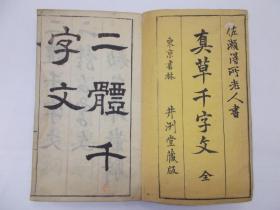 佐瀬得所老人書
真草千字文 全
東京書林 井洌堂蔵版
二體千
字文